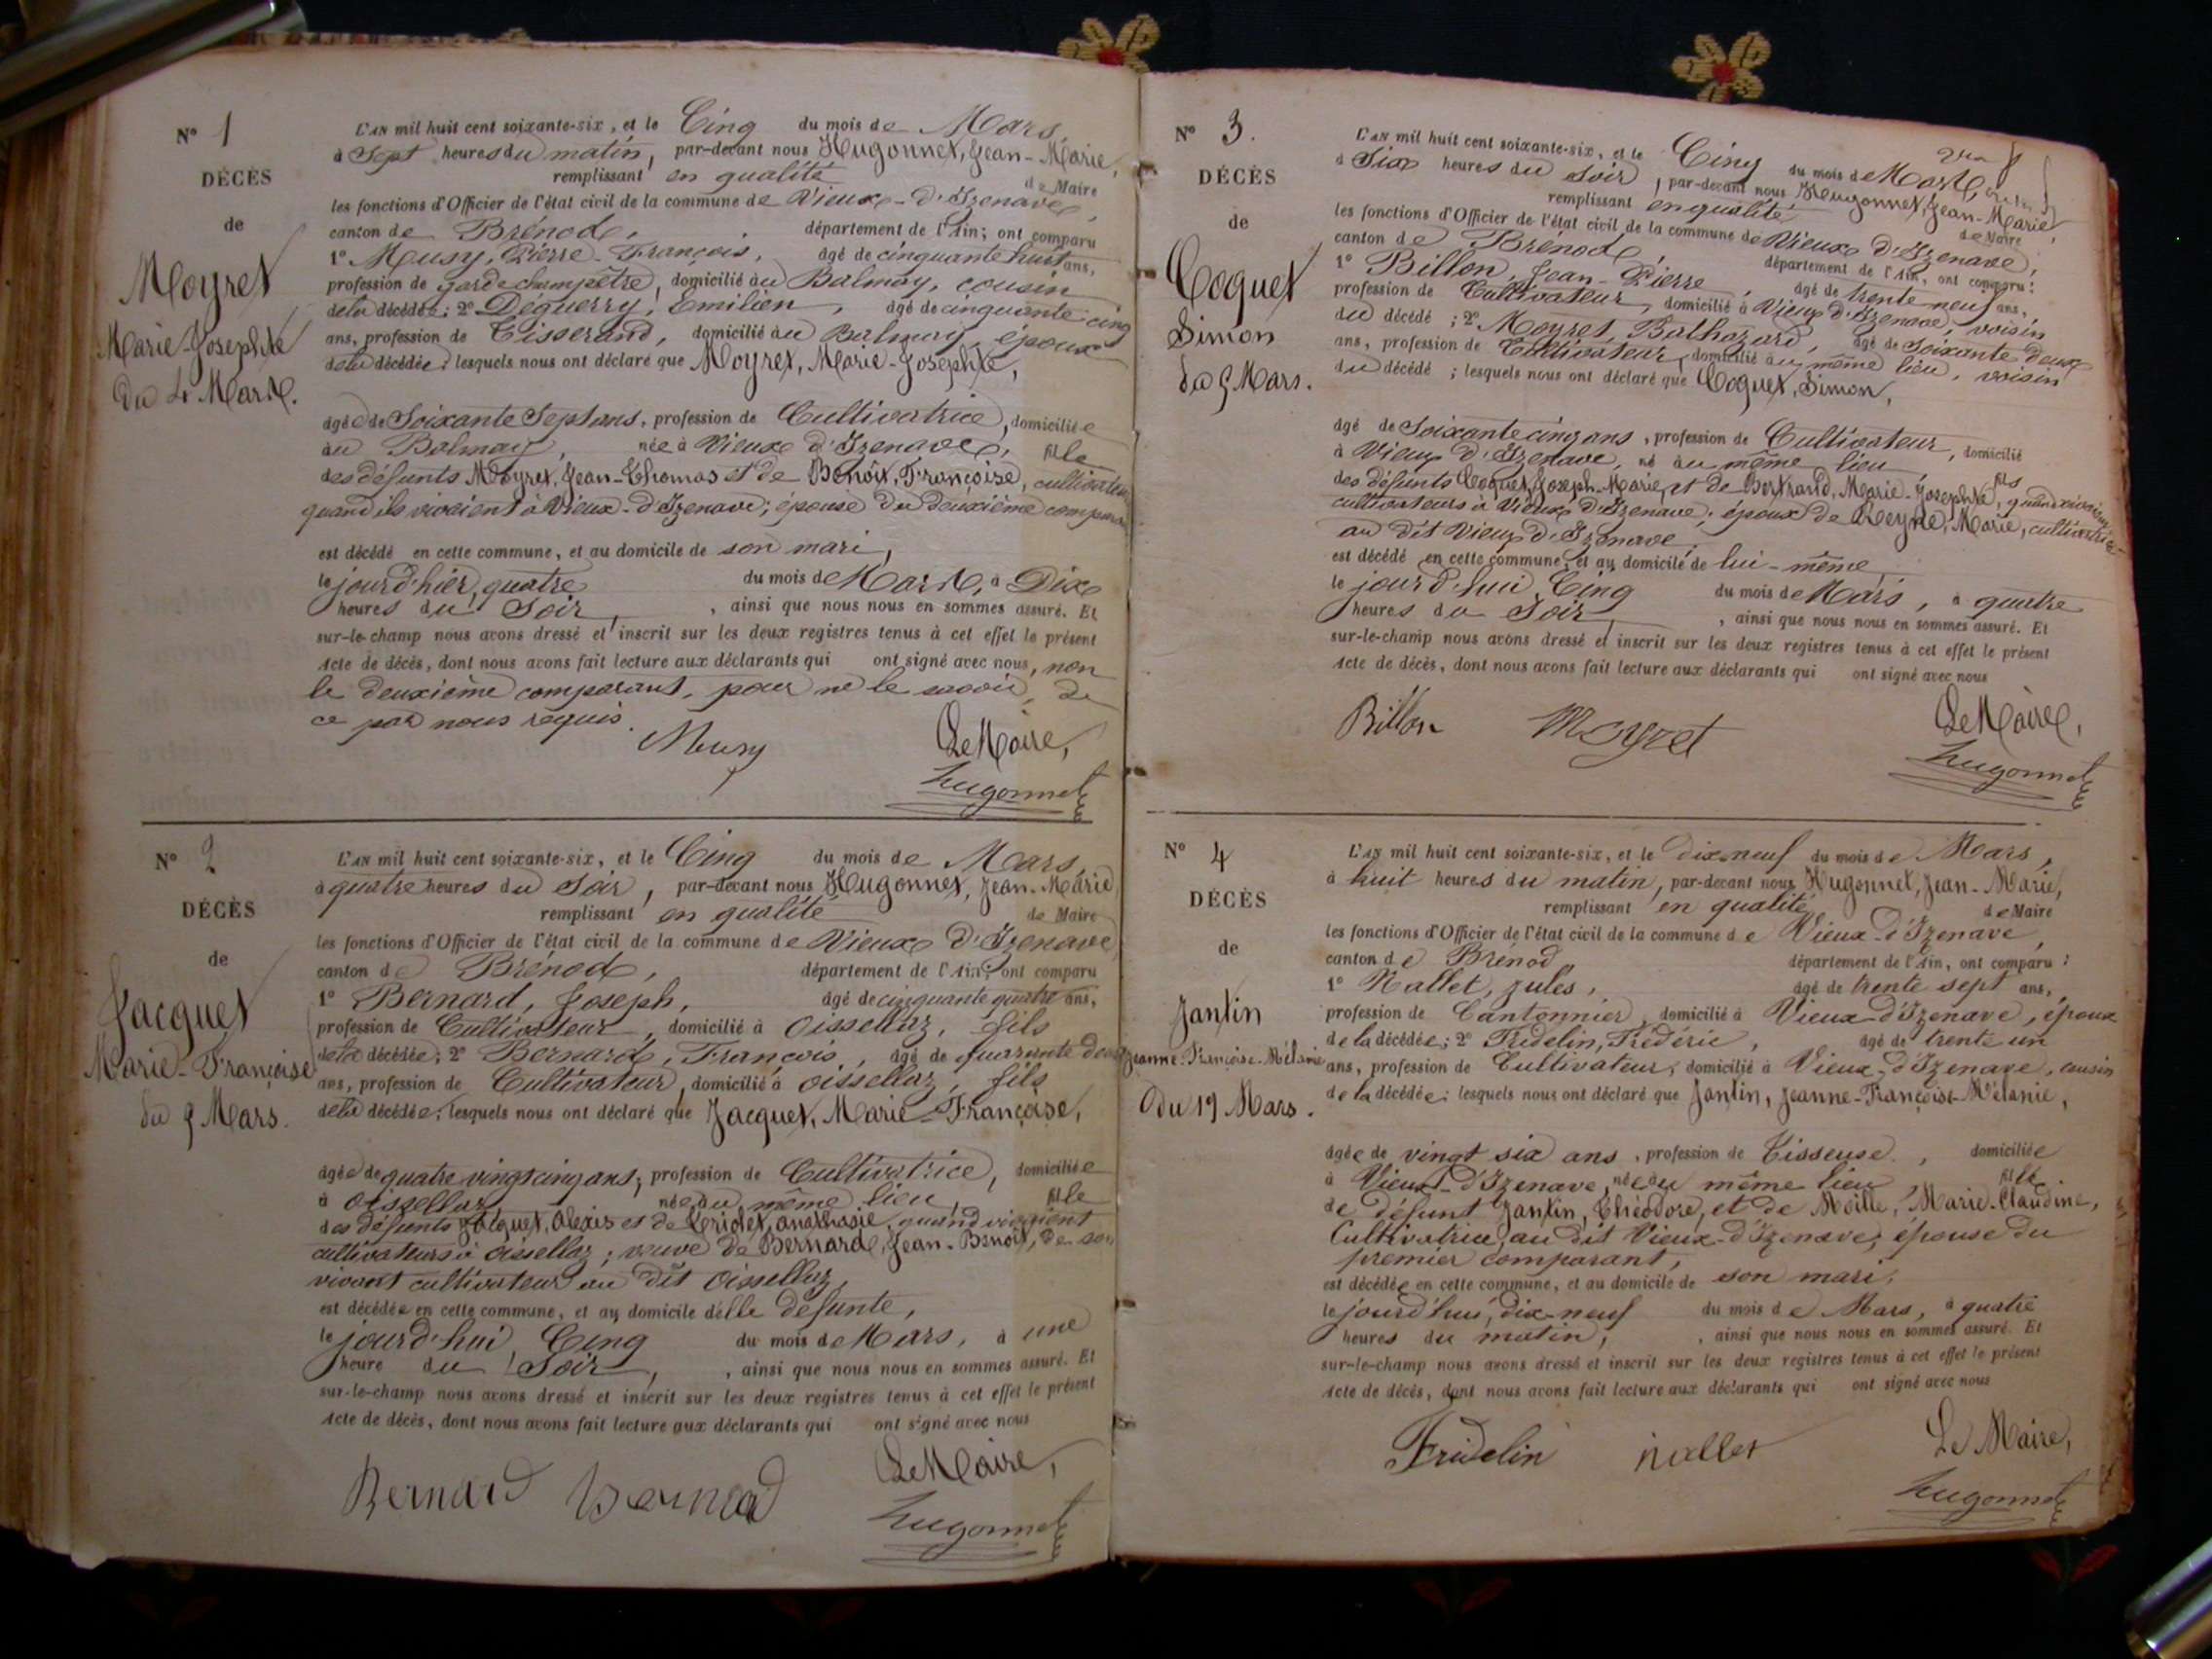 N° 1
DÉCÈS
de
Moyret
Marie-Josephte
Du 4 Mars.
L'AN mil huit cent soixante-six, et le Cinq du mois de Mars,
à Sept heures du matin, par-devant nous Hugonnet, Jean-Marie,
remplissant en qualité de Maire
les fonctions d'Officier de l'état civil de la commune de Vieux-d'Izenave,
canton de Brénod, département de l'Ain; ont comparu
1° Musy, Pierre-François, âgé de cinquante huit ans,
profession de garde champêtre, domicilié au Balmay, cousin
de la décédée; 2° Déguerry, Emilien, âgé de cinquante cinq
ans, profession de Tisserand, domicilié au Balmay, époux
de la décédée; lesquels nous ont déclaré que Moyret, Marie-Josephte,
âgée de Soixante Sept ans, profession de Cultivatrice, domiciliée
au Balmay, née à Vieux d'Izenave, fille
des défunts Moyret, Jean-Thomas et de Benoit, Françoise, cultivateurs
quand ils vivaient à Vieux-d'Izenave; épouse du deuxième comparant
est décédé en cette commune, et au domicile de son mari,
le jourd'hier, quatre du mois de Mars, à Dix
heures du Soir, ainsi que nous nous en sommes assuré. Et
sur-le-champ nous avons dressé et inscrit sur les deux registres tenus à cet effet le présent
Acte de décès, dont nous avons fait lecture aux déclarants qui ont signé avec nous, non
le deuxième comparant, pour ne le savoir, de
ce par nous requis.
Musy Le Maire,
Hugonnet
N° 2
DÉCÈS
de
Jacquet
Marie-Françoise
du 5 Mars.
L'AN mil huit cent soixante-six, et le Cinq du mois de Mars,
à quatre heures du Soir, par-devant nous Hugonnet, Jean-Marie
remplissant en qualité de Maire
les fonctions d'Officier de l'état civil de la commune de Vieux d'Izenave
canton de Brénod, département de l'Ain; ont comparu
1° Bernard, Joseph, âgé de cinquante quatre ans,
profession de Cultivateur, domicilié à Oissellaz, fils
de la décédée; 2° Bernard, François, âgé de quarante deux
ans, profession de Cultivateur, domicilié à Oissellaz, fils
de la décédée; lesquels nous ont déclaré que Jacquet, Marie-Françoise,
âgée de quatre vingt cinq ans, profession de Cultivatrice, domiciliée
à Oissellaz, née au même lieu, fille
des défunts Jacquet, Alexis et de anathasie, quand vivaient
cultivateurs à Oissellaz; veuve de Bernard, Jean-Benoit, de son
vivant cultivateur au dit Oissellaz,
est décédée en cette commune, et au domicile d'elle défunte,
le jourd'hui, Cinq du mois de Mars, à une
heure du Soir, ainsi que nous nous en sommes assuré. Et
sur-le-champ nous avons dressé et inscrit sur les deux registres tenus à cet effet le présent
Acte de décès, dont nous avons fait lecture aux déclarants qui ont signé avec nous
Le Maire,
Bernard Bernard
Hugonnet
N° 3.
DÉCÈS
de
Coquet
Simon
du 5 Mars.
L'AN mil huit cent soixante-six, et le Cinq du mois de Mars,
à Six heures du Soir, par-devant nous Hugonnet, Jean-Marie,
remplissant en qualité de Maire
les fonctions d'Officier de l'état civil de la commune de Vieux d'Izenave,
canton de Brénod, département de l'Ain, ont comparu:
1° Billon, Jean-Pierre, âgé de trente neuf ans,
profession de Cultivateur, domicilié à Vieux d'Izenave, voisin
du décédé; 2° Moyret, Balthazard, âgé de soixante deux
ans, profession de Cultivateur, domicilié au même lieu, voisin
du décédé; lesquels nous ont déclaré que Coquet, Simon,
âgé de Soixante cinq ans, profession de Cultivateur, domicilié
à Vieux d'Izenave, né au même lieu, fils
des défunts Coquet, Joseph-Marie, et de Bertrand, Marie-Josephte, quand vivaient
cultivateurs à Vieux d'Izenave; époux de Reyne, Marie, cultivatrice
au dit Vieux d'Izenave.
est décédé en cette commune, et au domicile de lui-même
le jourd'hui, Cinq du mois de Mars, à quatre
heures du Soir, ainsi que nous nous en sommes assuré. Et
sur-le-champ nous avons dressé et inscrit sur les deux registres tenus à cet effet le présent
Acte de décès, dont nous avons fait lecture aux déclarants qui ont signé avec nous
Billon Moyret Le Maire,
Hugonnet
N° 4
DÉCÈS
de
Jantin
Jeanne-Françoise-Mélanie
du 19 Mars.
L'AN mil huit cent soixante-six, et le dix neuf du mois de Mars,
à huit heures du matin, par-devant nous Hugonnet, Jean-Marie,
remplissant en qualité de Maire
les fonctions d'Officier de l'état civil de la commune de Vieux-d'Izenave,
canton de Brénod département de l'Ain, ont comparu:
1° Nallet, Jules, âgé de trente sept ans,
profession de Cantonnier, domicilié à Vieux-d'Izenave, époux
de la décédée; 2° Fridelin, Frédéric, âgé de trente un
ans, profession de Cultivateur, domicilié à Vieux-d'Izenave, cousin
de la décédée; lesquels nous ont déclaré que Jantin, Jeanne-Françoise-Mélanie,
âgée de vingt six ans, profession de Tisseuse, domiciliée
à Vieux-d'Izenave, née au même lieu, fille
de défunt Jantin, Théodore, et de Moille, Marie-Claudine,
Cultivatrice, au dit Vieux-d'Izenave, épouse du
premier comparant,
est décédée en cette commune, et au domicile de son mari,
le jourd'hui, dix-neuf du mois de Mars, à quatre
heures du matin, ainsi que nous nous en sommes assuré. Et
sur-le-champ nous avons dressé et inscrit sur les deux registres tenus à cet effet le présent
Acte de décès, dont nous avons fait lecture aux déclarants qui ont signé avec nous
Fridelin nallet Le Maire,
Hugonnet